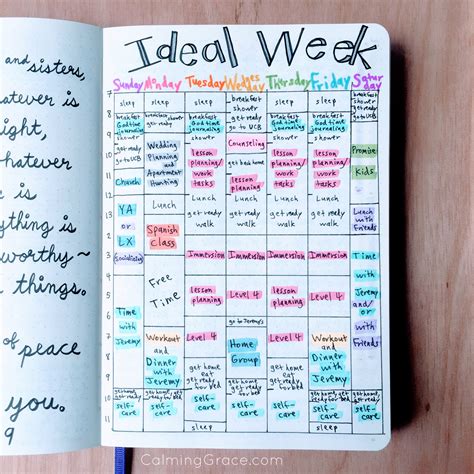 and
sisters,
whatever is
right,
whatever
is
everything is
worthy~
things.
of
peace
you.
9
Ideal Week
Sunday Monday Tuesday Wednesday Thursday Friday Saturday
7
8
9
10
11
12
1
2
3
4
5
6
7
8
9
10
11
sleep
breakfast
God time
journaling
shower
get ready
go to UCB
Church
YA
or
LX
(socialists)
Time
with
Jeremy
get home, get
ready for bed
self-
care
sleep
breakfast shower
get ready
Wedding
Planning
and
Apartment
Hunting
Lunch
Spanish
class
Free
Time
Workout
and
Dinner
with
Jeremy
self-
care
sleep
breakfast
God time
journaling
shower
lesson
planning/
work
tasks
Lunch
get ready
walk
Immersion
lesson
planning
Level 4
get home
eat
get ready
for bed
self-
care
breakfast
shower
get ready
go to UCB
Counseling
get back home
lesson
planning
Lunch
get ready
walk
Immersion
Level 4
go to Jeremy's
Home
Group
get home, get
ready for bed
self-
care
sleep
breakfast
God time
journaling
shower
lesson
planning/
work
tasks
Lunch
get ready
walk
Immersion
lesson
planning
Level 4
get home
eat
get ready
for bed
self-
care
sleep
breakfast
God time
journaling
shower
lesson
planning/
work
tasks
Lunch
get ready
walk
Immersion
Level 4
Workout
and
Dinner
with
Jeremy
get home, get
ready for bed
self-
care
breakfast
shower
get ready
Promise
Kids
Lunch
with
Friends
Time
with
Jeremy
and/
or
with
Friends
get home, get
ready for bed
self-
care
CalmingGrace.com